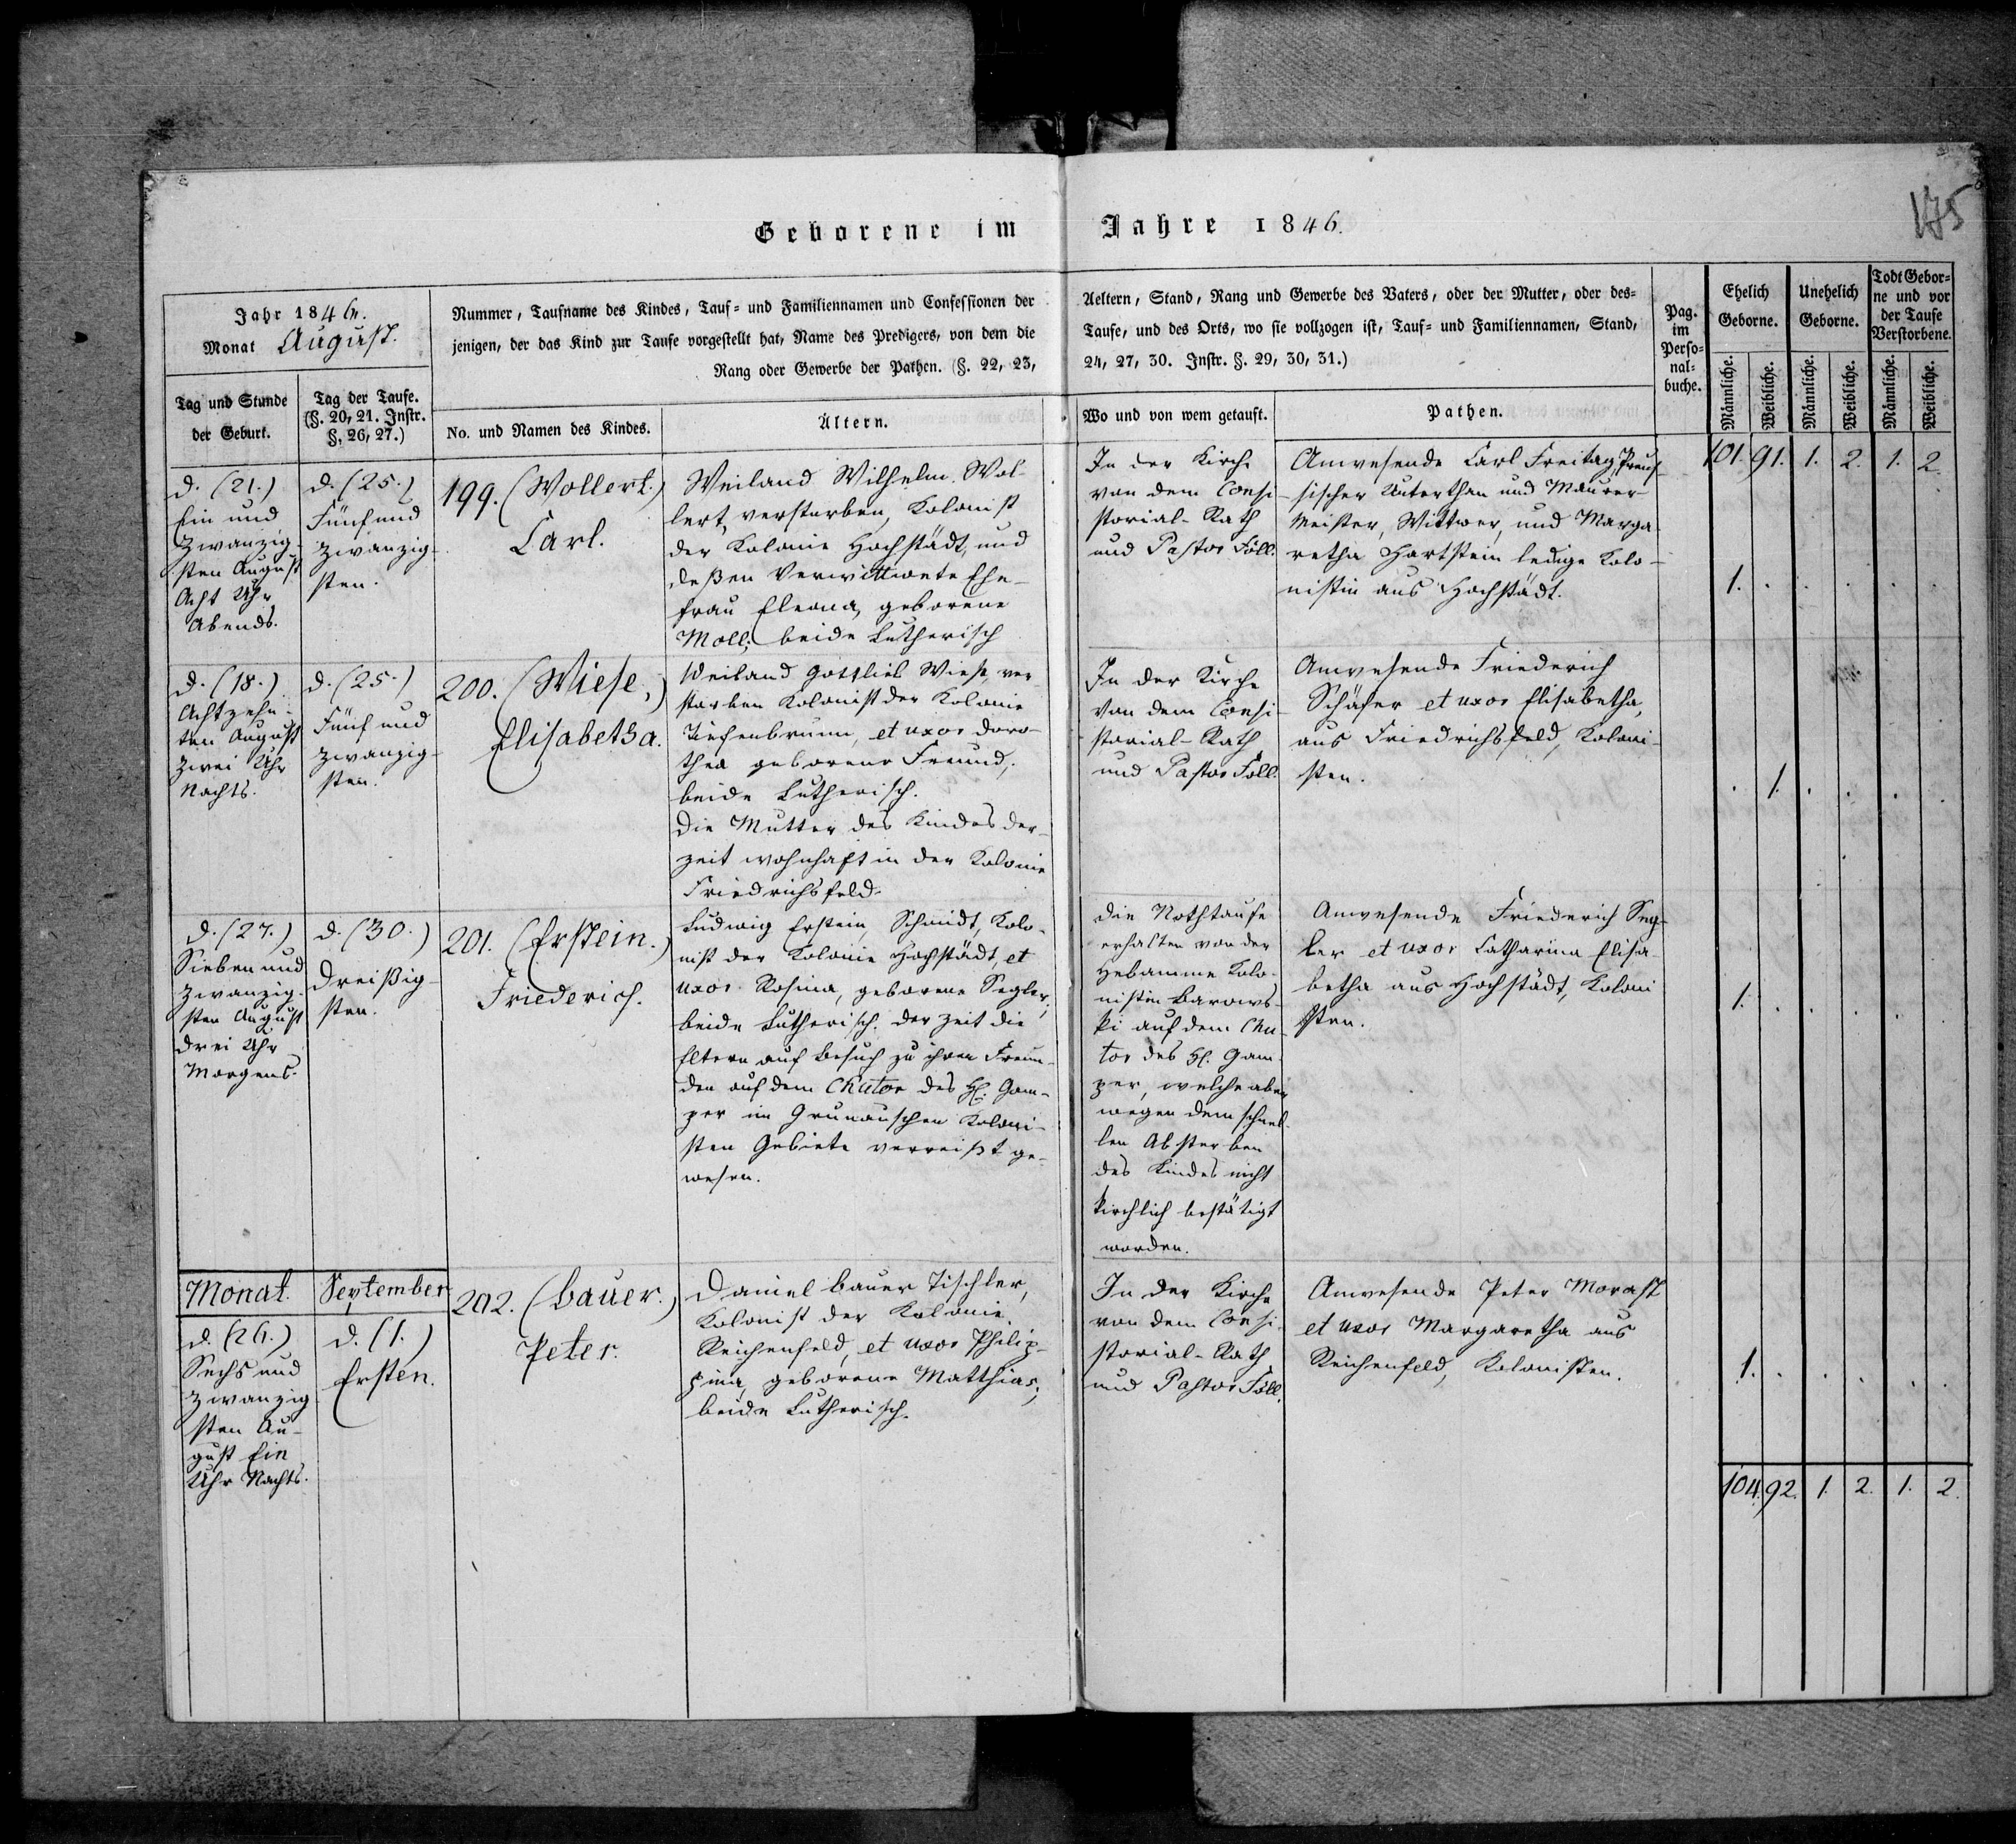 Geborene im Jahre 1846.
175
Jahr 1846.
Monat August.
Nummer, Taufname des Kindes, Tauf- und Familiennamen und Confessionen der
jenigen, der das Kind zur Taufe vorgestellt hat, Name des Predigers, von dem die
Rang oder Gewerbe der Pathen. (§. 22, 23,
Aeltern, Stand, Rang und Gewerbe des Vaters, oder der Mutter, oder des-
Taufe, und des Orts, wo sie vollzogen ist, Tauf- und Familiennamen, Stand,
24, 27, 30. Instr. §. 29, 30, 31.)
Pag.
im
Perso-
nal-
buche.
Ehelich
Geborne.
Unehelich
Geborne.
Todt Gebor-
ne und vor
der Taufe
Verstorbene.
Männliche.
Weibliche.
Männliche.
Weibliche.
Männliche.
Weibliche.
Tag und Stunde
der Geburt.
Tag der Taufe.
(§. 20, 21. Instr.
§. 26, 27.)
No. und Namen des Kindes.
Ältern.
Wo und von wem getauft.
Pathen.
101. 91. 1. 2. 1. 2.
d. (21.)
Ein und
zwanzig-
sten August
Acht Uhr
Abends.
d. (25.)
Fünf und
zwanzig-
sten.
199. (Wollert.)
Carl.
Weiland Wilhelm Wol-
lert, verstorben, Kolonist
der Kolonie Hochstädt, und
deßen Verwittwete Ehe-
frau Eleona, geborene
Moll; beide Lutherisch
In der Kirche
von dem Consi-
storial-Rath
und Pastor Föll.
Anwesende Carl Freitag, Preus-
sischer Unterthan und Maurer-
Meister, Wittwer, und Marga-
retha Hartstein ledige Kolo-
nistin aus Hochstädt.
1. . . . . .
d. (18.)
Achtzehn-
ten August
zwei Uhr
Nachts.
d. (25.)
Fünf und
zwanzig-
sten.
200. (Wiese,)
Elisabetha.
Weiland Gottlieb Wiese ver-
storben Kolonist der Kolonie
Tiefenbrunn, et uxor Doro-
thea geborene Freund,
beide Lutherisch.
Die Mutter des Kindes der-
zeit wohnhaft in der Kolonie
Friedrichsfeld.
In der Kirche
von dem Consi-
storial-Rath
und Pastor Föll.
Anwesende Friederich
Schäfer et uxor Elisabetha,
aus Friedrichsfeld, Koloni-
sten.
. 1. . . . .
d. (27.)
Sieben und
zwanzig-
sten August
drei Uhr
Morgens.
d. (30.)
Dreißig-
sten.
201. (Erstein.)
Friederich.
Ludwig Erstein, Schmidt, Kolo-
nist der Kolonie Hochstädt, et
uxor Rosina, geborene Segler;
beide Lutherisch. der Zeit die
Eltern auf Besuch zu ihren Freun-
den auf dem Chutor des H. Gam-
per im Grunauschen Koloni-
sten Gebiete verreißt ge-
wesen.
Die Nothtaufe
erhalten von der
Hebamme Kolo-
nistin Barows-
ki auf dem Chu-
tor des H. Gam-
per, welche aber
wegen dem schnel-
len Absterben
des Kindes nicht
kirchlich bestätigt
worden.
Anwesende Friederich Seg-
ler et uxor Catharina Elisa-
betha aus Hochstädt, Koloni
sten.
1. . . . . .
Monat. September
d. (26.)
Sechs und
zwanzig
sten Au-
gust Ein
Uhr Nachts.
d. (1.)
Ersten.
202. (Bauer.)
Peter.
Daniel Bauer Tischler,
Kolonist der Kolonie
Reichenfeld, et uxor Philip-
pina, geborene Matthias,
beide Lutherisch.
In der Kirche
von dem Consi-
storial-Rath
und Pastor Föll.
Anwesende Peter Morast
et uxor Margaretha aus
Reichenfeld, Kolonisten.
1. . . . . .
104. 92. 1. 2. 1. 2.